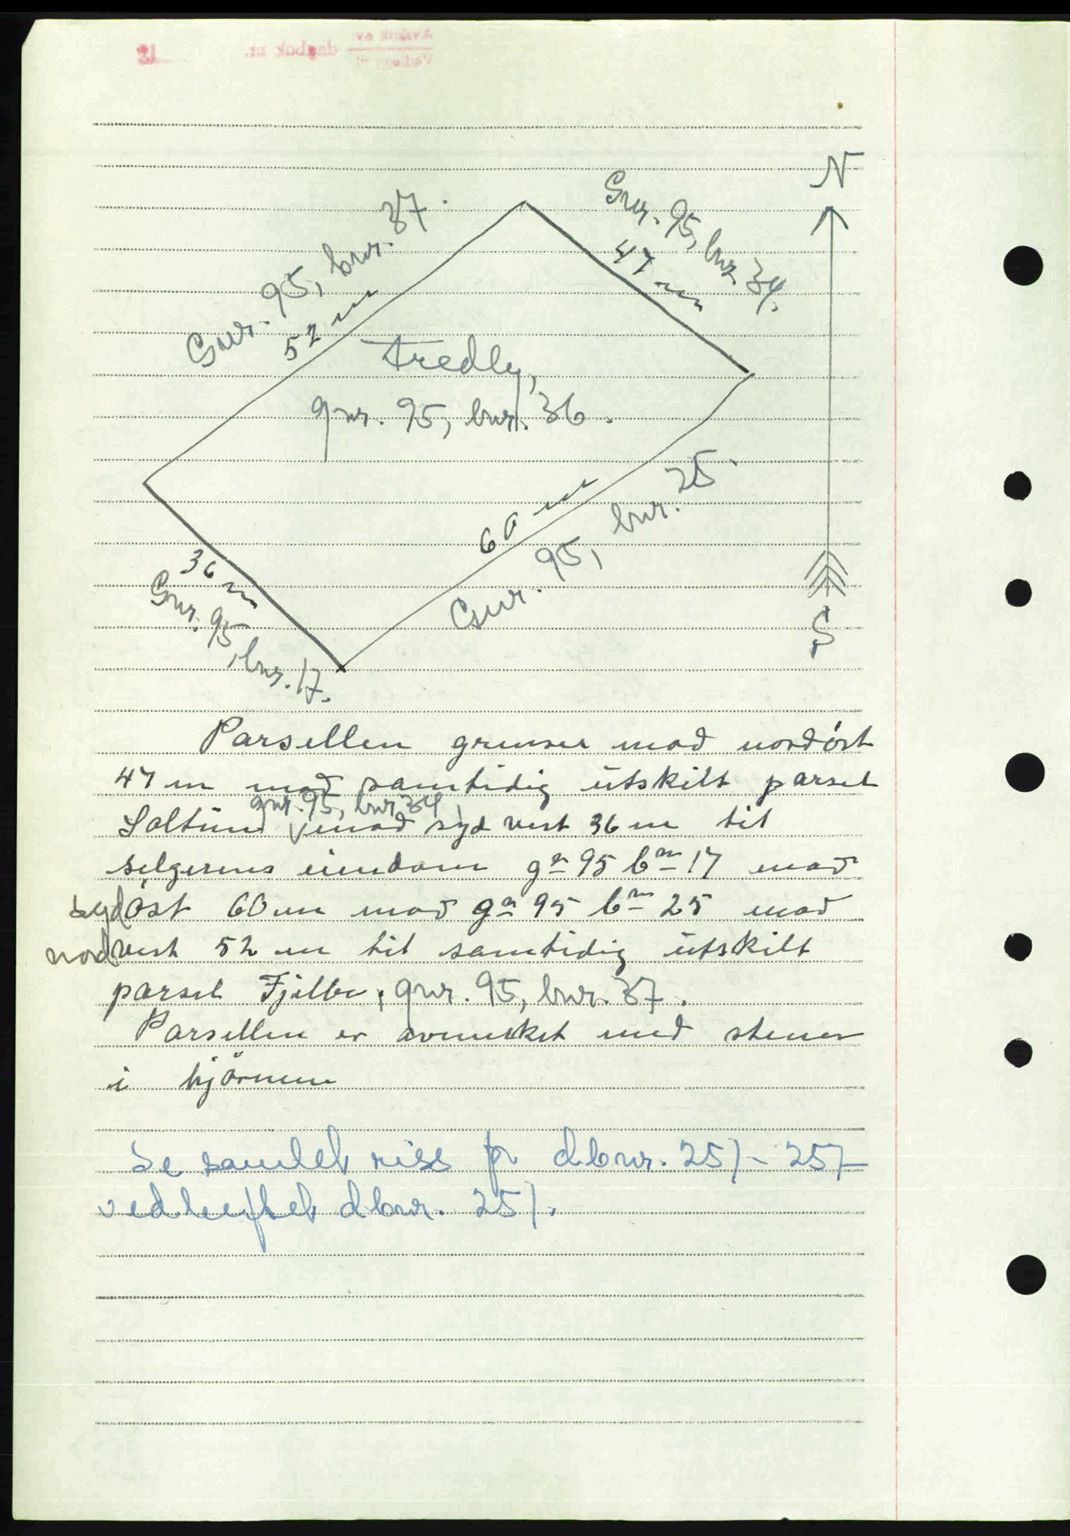 N
Gnr. 95, bnr. 37.
52 m
Gnr. 95, bnr. 34.
47 m
Fredly,
gnr. 95, bnr. 36.
60 m
Gnr. 95, bnr. 25.
36 m
Gnr. 95, bnr. 17.
S
Parsellen grenser mod nordöst
47 m mod samtidig utskilt parsel
gnr. 95, bnr 34,
Soltun mod syd vest 36 m til
selgerens eiendom gn 95 bn 17 mod
sydöst 60 m mod gn 95 bn 25 mod
nordvest 52 m til samtidig utskilt
parsel Fjilbu, gnr. 95, bnr. 37.
Parsellen er avmerket med stener
i hjörnene
Se samlet riss for dbnr. 251 - 257
vedheftet dbnr. 251.